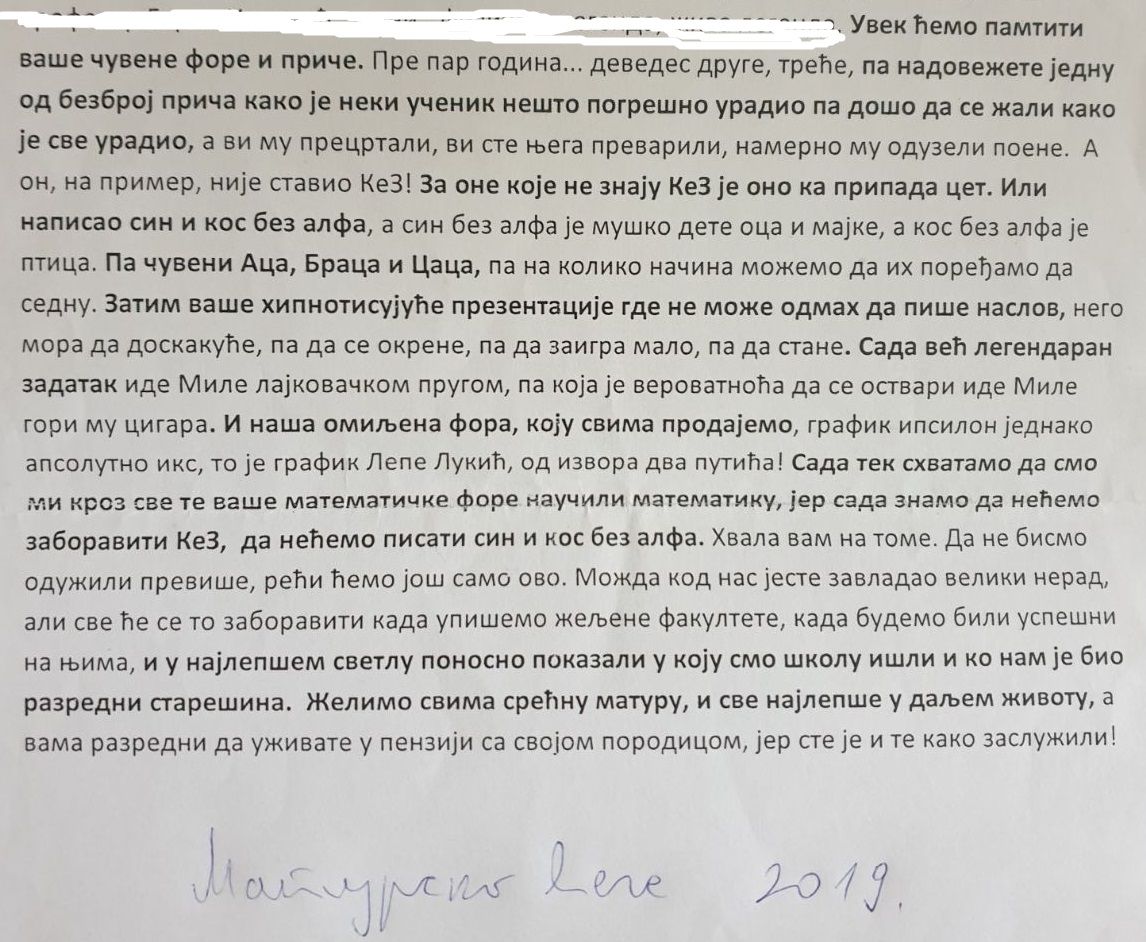 Увек ћемо памтити
ваше чувене форе и приче. Пре пар година... деведес друге, треће, па надовежете једну
од безброј прича како је неки ученик нешто погрешно урадио па дошо да се жали како
је све урадио, а ви му прецртали, ви сте њега преварили, намерно му одузели поене. А
он, на пример, није ставио КеЗ! За оне које не знају КеЗ је оно ка припада цет. Или
написао син и кос без алфа, а син без алфа је мушко дете оца и мајке, а кос без алфа је
птица. Па чувени Аца, Браца и Цаца, па на колико начина можемо да их поређамо да
седну. Затим ваше хипнотисујуће презентације где не може одмах да пише наслов, него
мора да доскакуће, па да се окрене, па да заигра мало, па да стане. Сада већ легендаран
задатак иде Миле лајковачком пругом, па која је вероватноћа да се оствари иде Миле
гори му цигара. И наша омиљена фора, коју свима продајемо, график ипсилон једнако
апсолутно икс, то је график Лепе Лукић, од извора два путића! Сада тек схватамо да смо
ми кроз све те ваше математичке форе научили математику, јер сада знамо да нећемо
заборавити КеЗ, да нећемо писати син и кос без алфа. Хвала вам на томе. Да не бисмо
одужили превише, рећи ћемо још само ово. Можда код нас јесте завладао велики нерад,
али све ће се то заборавити када упишемо жељене факултете, када будемо били успешни
на њима, и у најлепшем светлу поносно показали у коју смо школу ишли и ко нам је био
разредни старешина. Желимо свима срећну матуру, и све најлепше у даљем животу, а
вама разредни да уживате у пензији са својом породицом, јер сте је и те како заслужили!
Матурско вече 2019.